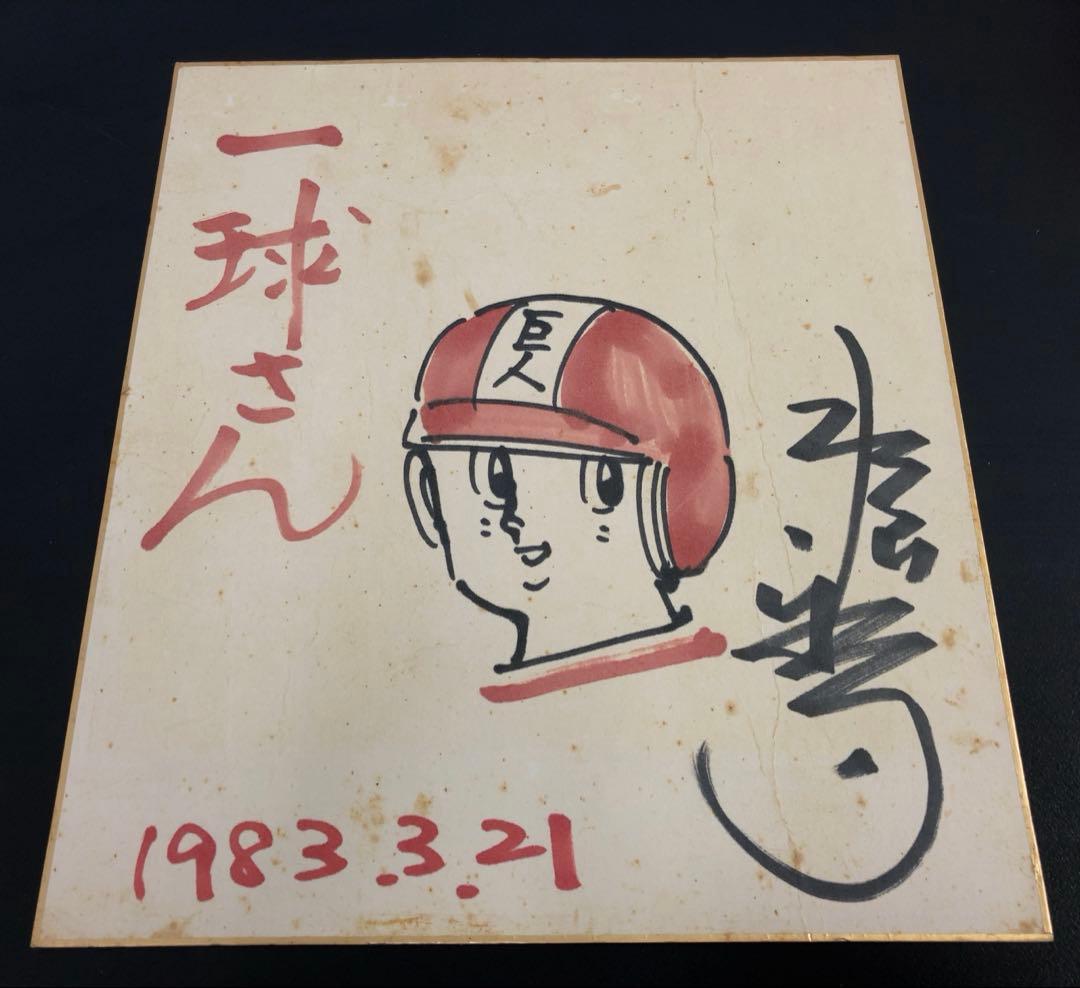 一球さん
巨人
1983.3.21